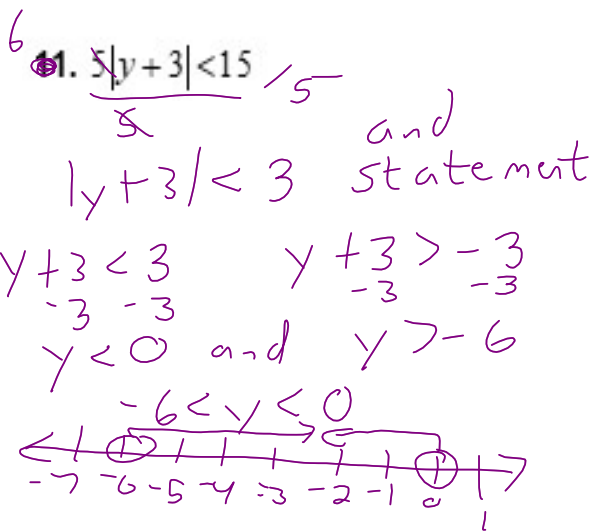 6
11. 5|y+3|<15 /5
5
and
|y+3|<3 statement
y+3<3 y+3>-3
-3 -3 -3 -3
y<0 and y>-6
-6<y<0
-7 -6 -5 -4 -3 -2 -1 0 1